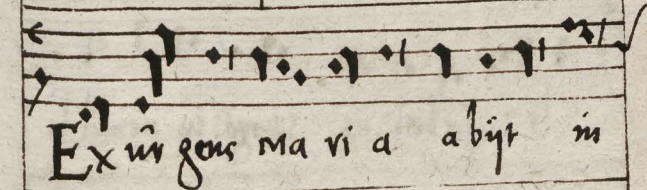 Exur gens Ma ri a a bijt in